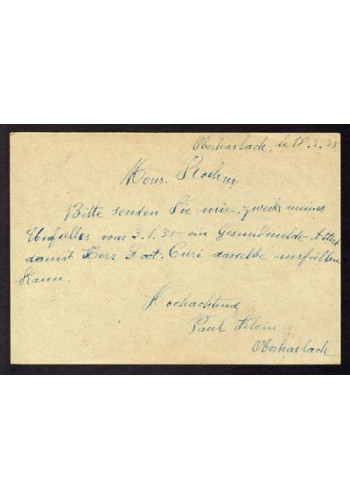 Oberhaslach, le 18.2.30
Mons. Stochm
Bitte senden Sie mir, zwecks meines
Unfalles vom 3.1.30 ein gesundmelde-Attest
damit Herr Dokt. Curi dasselbe ausfüllen
kann.
Hochachtend
Paul
Oberhaslach